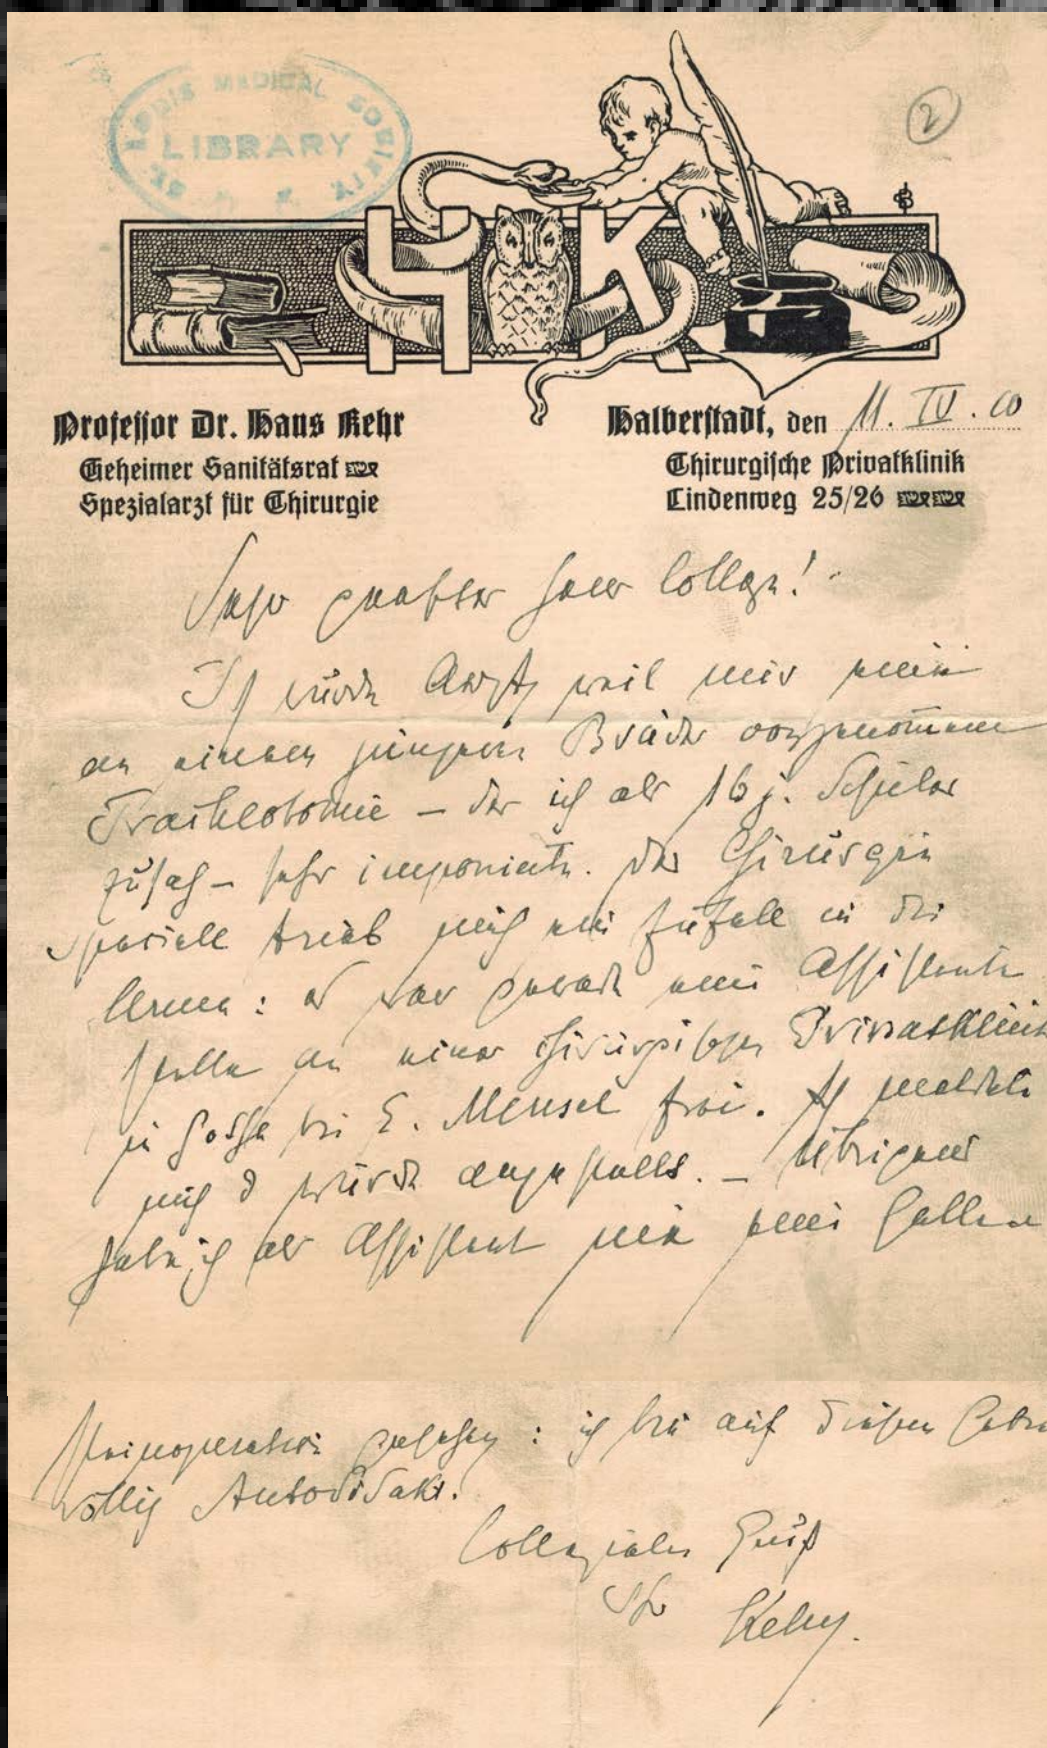 ST. LOUIS MEDICAL SOCIETY
LIBRARY
2
H K
Professor Dr. Hans Kehr
Geheimer Sanitätsrat
Spezialarzt für Chirurgie
Halberstadt, den 11. IV. 00
Chirurgische Privatklinik
Lindenweg 25/26
Sehr geehrter Herr College!
Ich wurde Arzt, weil mir eine
an einem jüngeren Bruder vorgenommene
Tracheotomie – der ich als 16 j. Schüler
zusah – sehr imponierte. Der Chirurgie
speciell trieb mich ein Zufall in die
Arme: es war gerade eine Assistenten
stelle an einer chirurgischen Privatklinik
in Gotha bei E. Meusel frei. Ich meldete
mich u wurde angestellt. – Übrigens
habe ich als Assistent nie eine Gallen
steinoperation gesehen: ich bin auf diesem Gebiet
völlig Autodidakt.
Collegialen Gruß
Ihr Kehr.